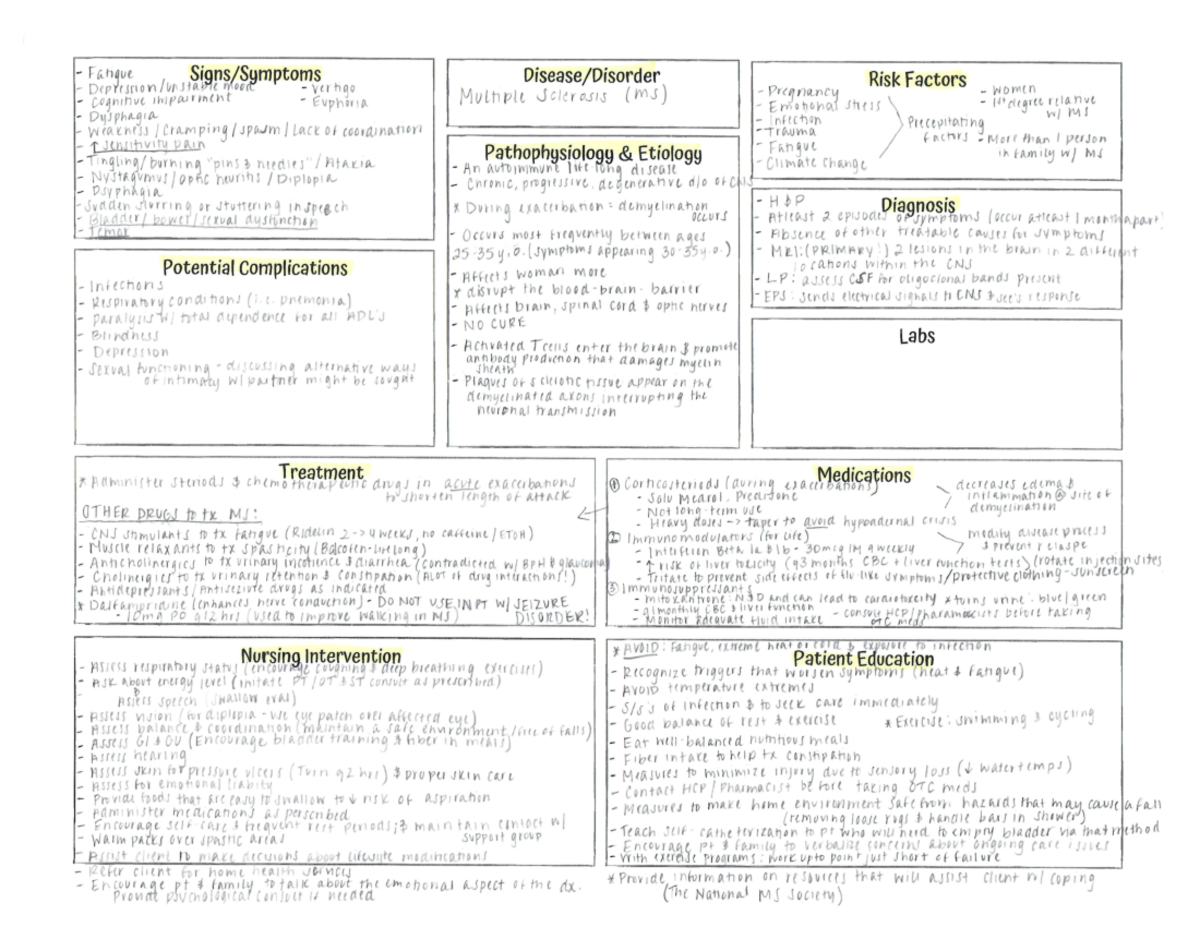 Signs/Symptoms
- Fatigue
- Depression/unstable mood
- Cognitive impairment
- Dysphagia
- Weakness / Cramping / spasm / Lack of coordination
- ↑ sensitivity pain
- Tingling/burning "pins & needles" / Ataxia
- Nystagmus / optic neuritis / Diplopia
- Dsyphagia
- Sudden slurring or stuttering in speech
- Bladder / bowel / sexual dysfunction
- Temor
- Vertigo
- Euphoria
Disease/Disorder
Multiple Sclerosis (MS)
Risk Factors
- Pregnancy
- Emotional stress
- Infection
- Trauma
- Fatigue
- Climate change
Precepitating
factors
- Women
- 1st degree relative
w/ MS
- More than 1 person
in family w/ MS
Pathophysiology & Etiology
- An autoimmune life long disease
- Chronic, progressive, degenerative d/o of CNS
* During exacerbation = demyelination
occurs
- Occurs most frequently between ages
25-35 y.o. (symptoms appearing 30-35 y.o.)
- Affects woman more
* disrupt the blood-brain-barrier
- Affects brain, spinal cord & optic nerves
- NO CURE
- Activated T cells enter the brain & promote
antibody production that damages myelin
sheath
- Plaques of sclerotic tissue appear on the
demyelinated axons interrupting the
neuronal transmission
Diagnosis
- H & P
- Atleast 2 episodes of symptoms (occur atleast 1 month apart)
- Absence of other treatable causes for symptoms
- MRI: (PRIMARY!) 2 lesions in the brain in 2 different
locations within the CNS
- LP: assess CSF for oligoclonal bands present
- EPS: sends electrical signals to CNS & see's response
Potential Complications
- Infections
- Respiratory conditions (i.e. pnemonia)
- Paralysis w/ total dependence for all ADL's
- Blindness
- Depression
- Sexual functioning - discussing alternative ways
of intimacy w/ partner might be sought
Labs
Treatment
* Administer steriods & chemotherapeutic drugs in acute exacerbations
to shorten length of attack
OTHER DRUGS to tx MS:
- CNS stimulants to tx fatigue (Ridelin 2->4 weeks, no caffeine / ETOH)
- Muscle relaxants to tx spasticity (Baclofen-lifelong)
- Anticholinergics to tx urinary incotience & diarrhea (contradicted w/ BPH & glaucoma)
- Cholinergics to tx urinary retention & constipation (ALOT of drug interactions!)
- Antidepressants / Antiseizure drugs as indicated
* Dalfampridine (enhances nerve conduction) - DO NOT USE IN PT W/ SEIZURE
- 10mg PO q12hrs (used to improve walking in MS) DISORDER!
Medications
① Corticosteriods (during exacerbations)
- Solu Medrol, Predisone
- Not long-term use
- Heavy doses -> taper to avoid hypoadernal crisis
decreases edema &
inflammation @ site of
demyelination
② Immunomodulators (for life)
- Interferon Beta 1a & 1b - 30mcg IM q weekly
- ↑ risk of liver toxicity (q3 months CBC + liver function tests) (rotate injection sites)
- Titrate to prevent side effects of flu-like symptoms/protective clothing-sunscreen
modify disease process
& prevent relaspe
③ Immunosuppressants
- mitoxantrone: NSD and can lead to cardiotoxicity * turns urine: blue/green
- q/monthly CBC & liver function - consult HCP/Pharamacists before taking
- Monitor adequate fluid intake OTC meds
Nursing Intervention
- Assess respiratory status (encourage coughing & deep breathing exercises)
- Ask about energy level (initate PT/OT & ST consult as prescribed)
Assess speech (swallow eval)
- Assess vision (for diplopia - use eye patch over affected eye)
- Assess balance & coordination (maintain a safe environment / free of falls)
- Assess GI & GU (Encourage bladder training & fiber in meals)
- Assess hearing
- Assess skin for pressure ulcers (Turn q2 hrs) & proper skin care
- Assess for emotional liabity
- Provide foods that are easy to swallow to ↓ risk of aspiration
- Administer medications as perscribed
- Encourage self care & frequent rest periods; & maintain contact w/
support group
- Warm packs over spastic areas
- Assist client to make decisions about lifestyle modifications
- Refer client for home health services
- Encourage pt & family to talk about the emotional aspect of the dx.
Provide psychological consult is needed
* AVOID: Fatigue, extreme heat or cold & exposure to infection
Patient Education
- Recognize triggers that worsen symptoms (heat & fatigue)
- AVOID temperature extremes
- S/s's of infection & to seek care immediately
- Good balance of rest & exercise * Exercise: swimming & cycling
- Eat well-balanced nutritious meals
- Fiber intake to help tx constipation
- Measures to minimize injury due to sensory loss (↓ water temps)
- Contact HCP / Pharmacist before taking OTC meds
- Measures to make home environment safe from hazards that may cause a fall
(removing loose rugs & handle bars in shower)
- Teach self-catheterization to pt who will need to empty bladder via that method
- Encourage pt & family to verbalize concerns about ongoing care issues
- With exercise programs: work up to point just short of failure
* Provide information on resources that will assist client w/ coping
(The National MS Society)